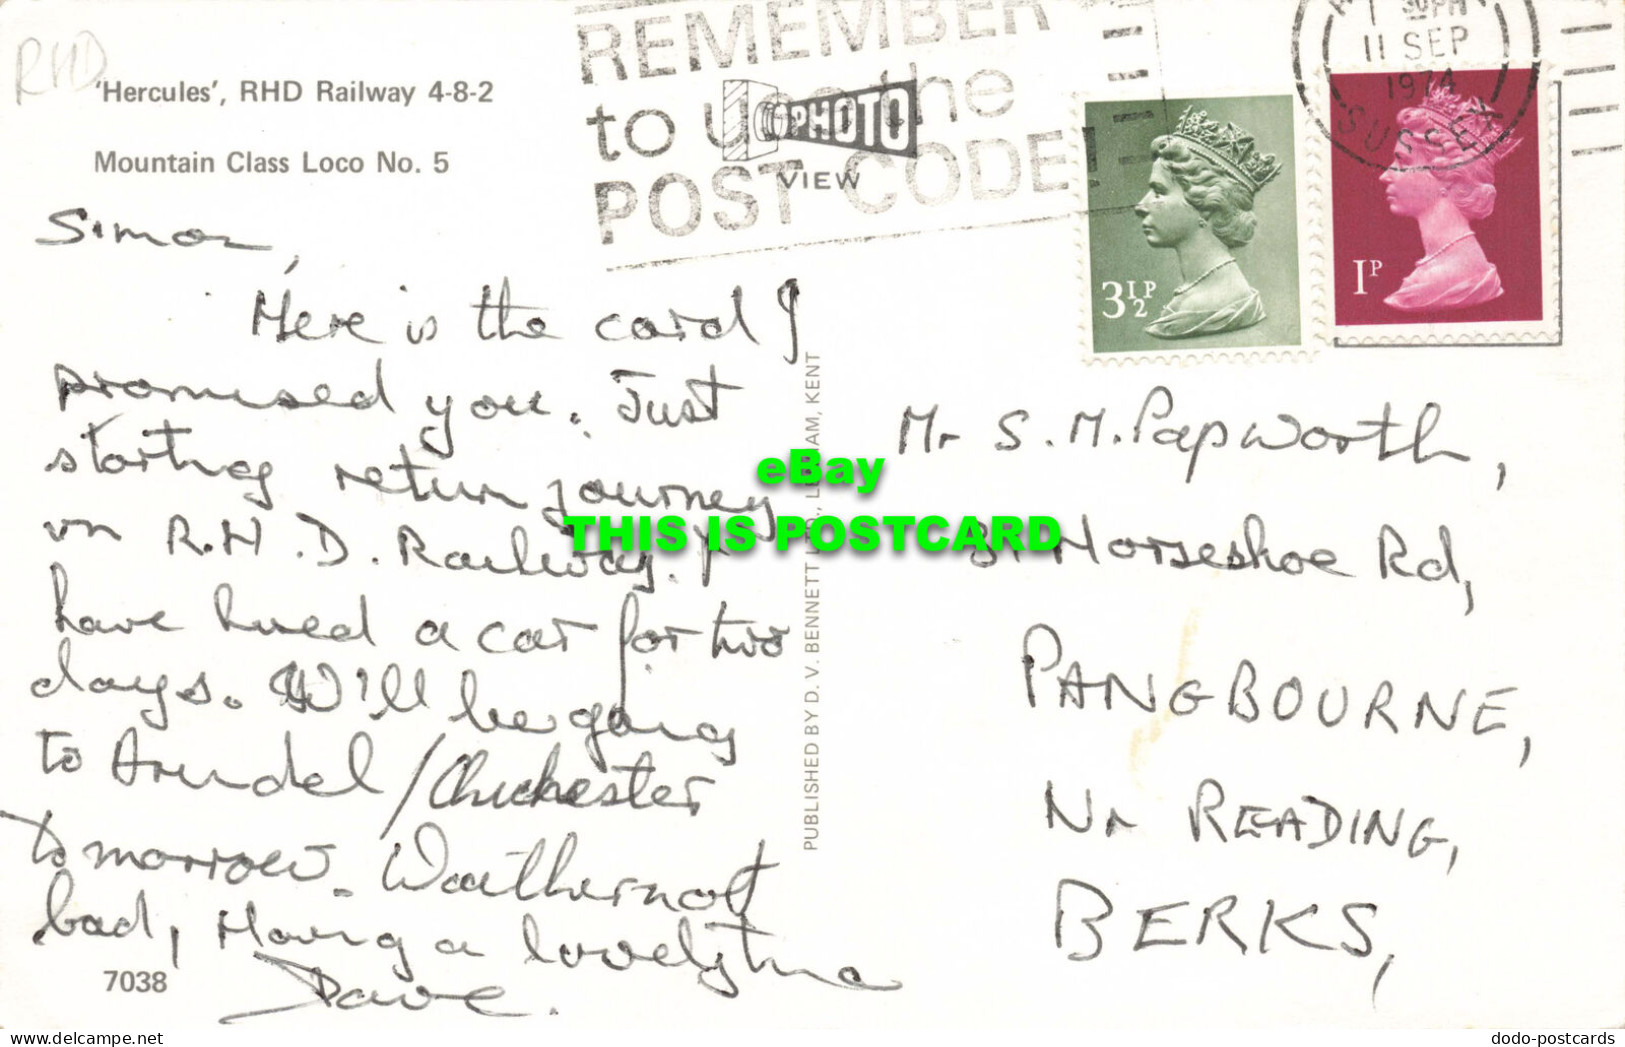 RHD
'Hercules', RHD Railway 4-8-2
Mountain Class Loco No. 5
REMEMBER
to use the
POST CODE
PHOTO
VIEW
30PM
11 SEP
1974
SUSSEX
3½P
1P
Simon,
Here is the card I
promised you. Just
starting return journey
on R.H.D. Railway. I
have hired a car for two
days. Will be going
to Arundel/Chichester
tomorrow. Weather not
bad, Having a lovely time
Dave.
7038
PUBLISHED BY D. V. BENNETT LTD., LENHAM, KENT
Mr S. M. Papworth,
Horseshoe Rd,
PANGBOURNE,
Nr READING,
BERKS,
eBay
THIS IS POSTCARD
delcampe.net
dodo-postcards